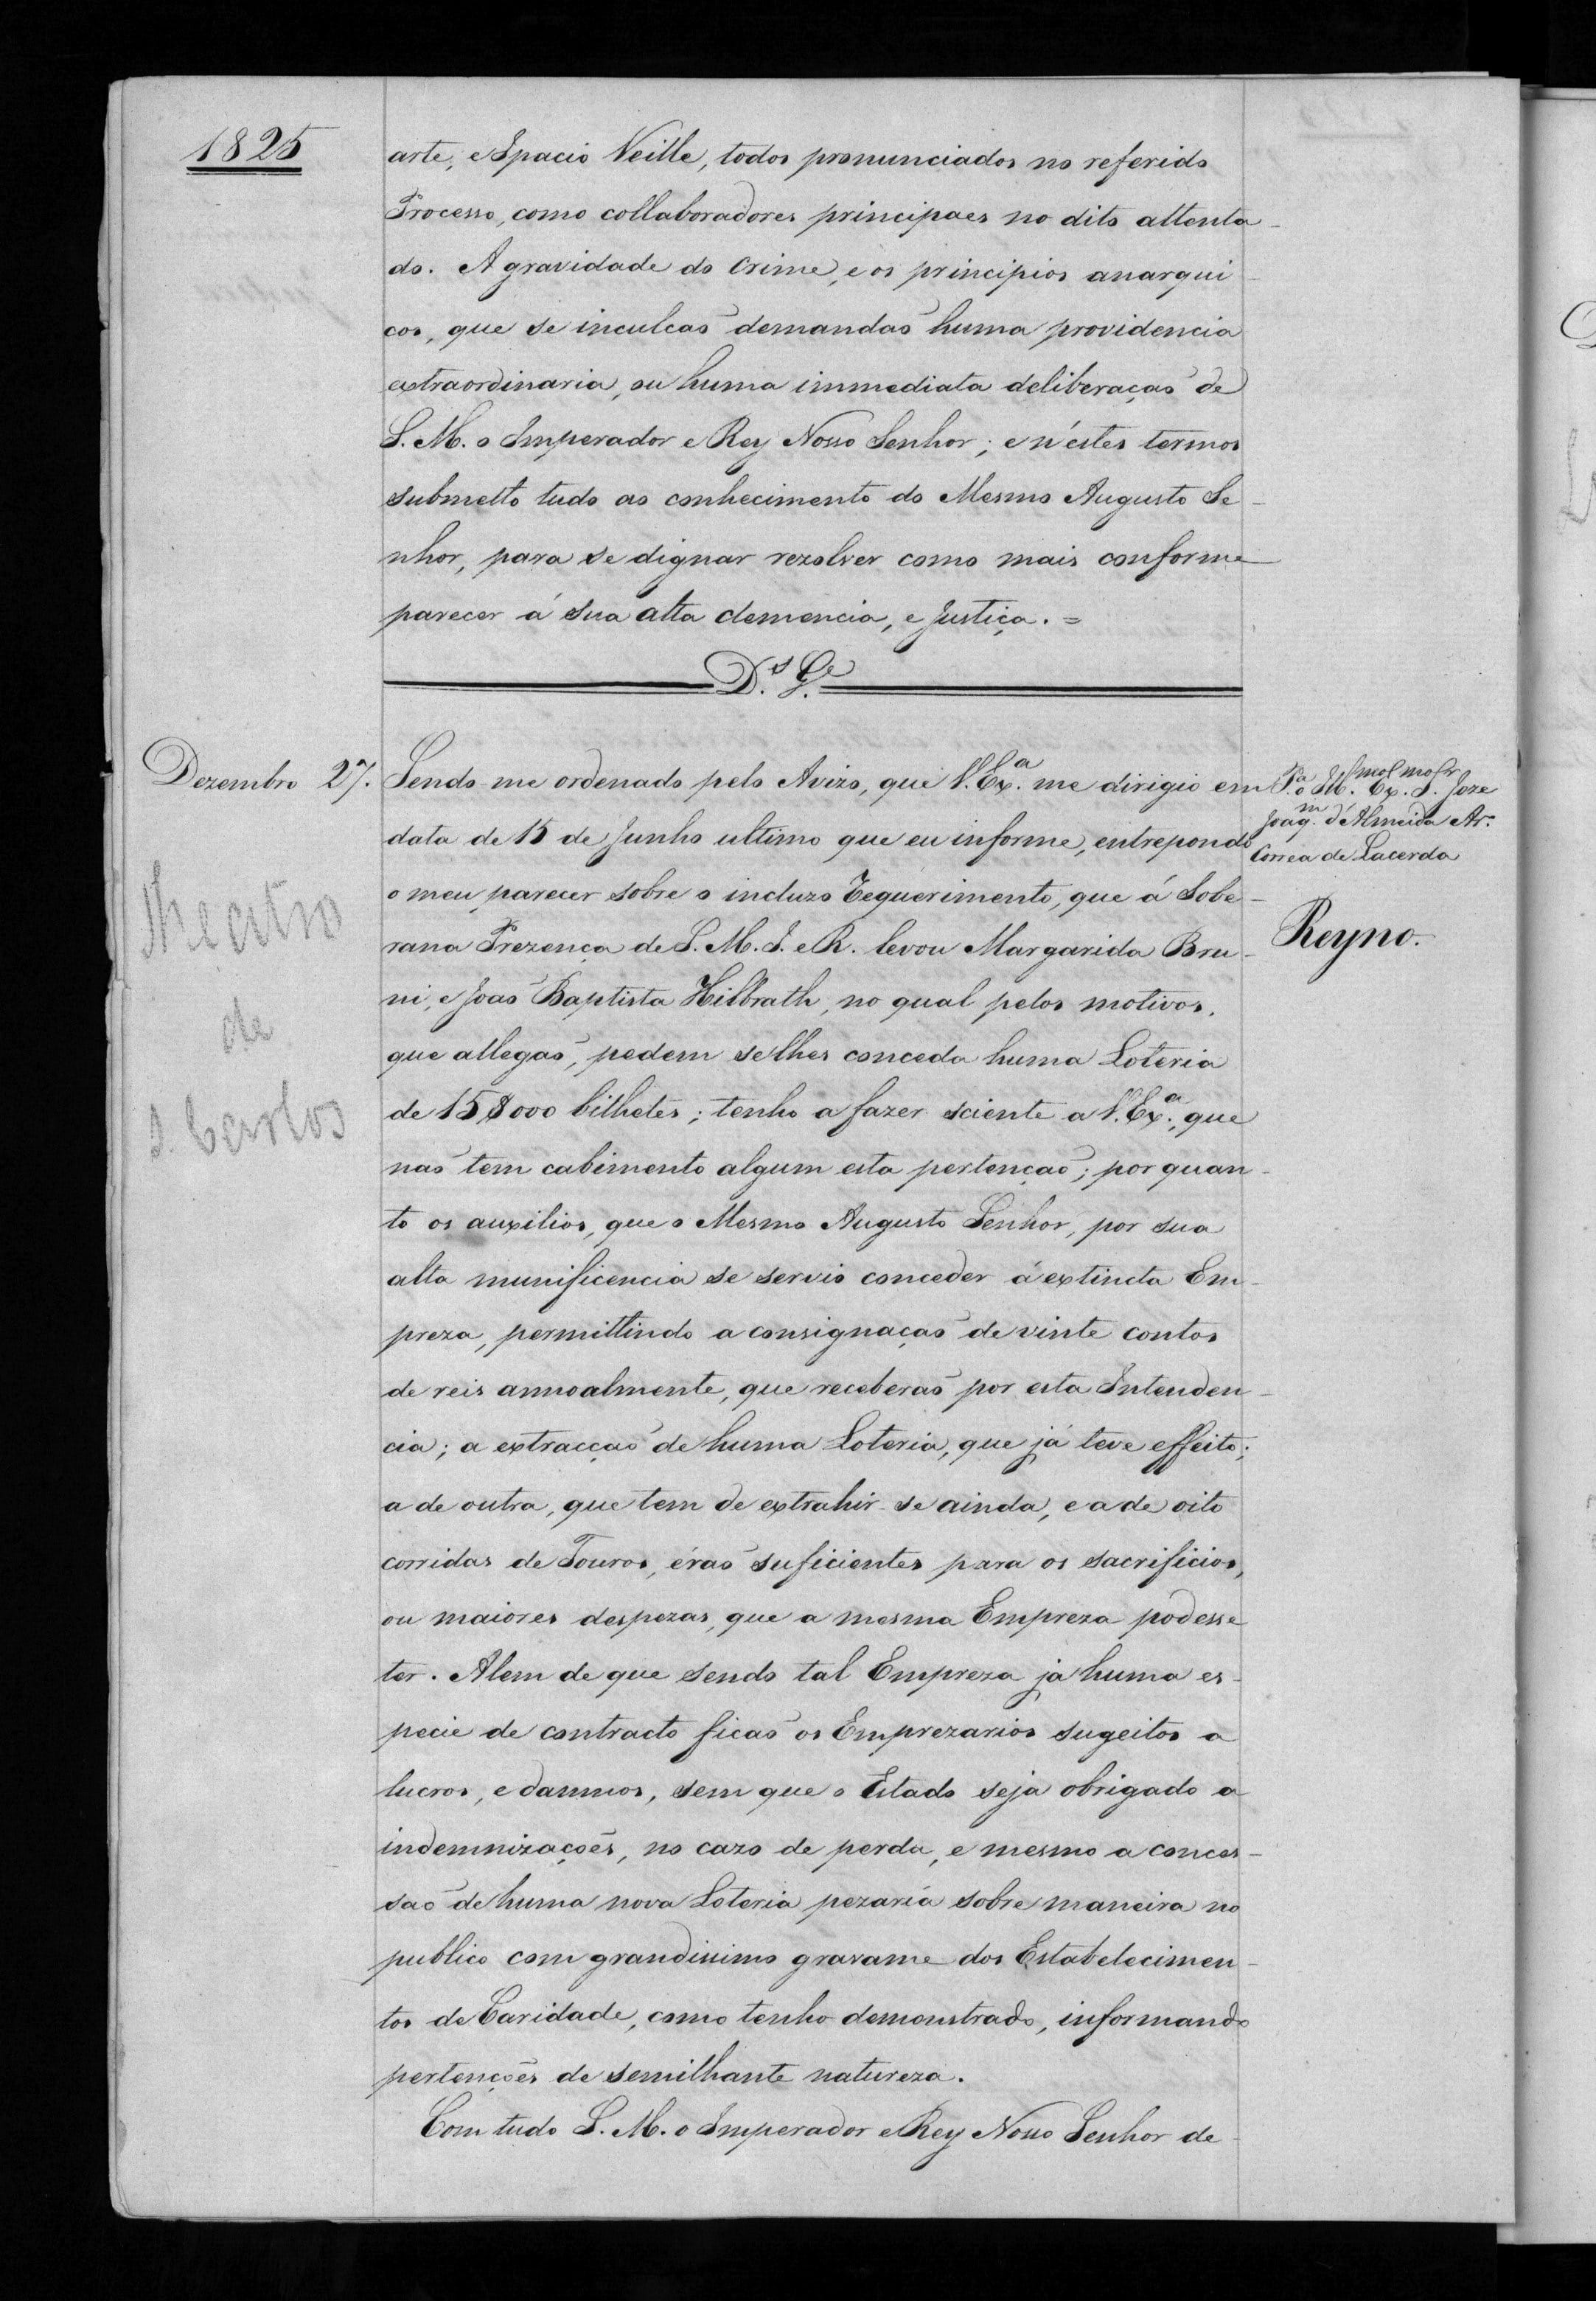 1825
arte, e Ipacio Veille, todos pronunciados no referido
Processo, como collaboradores principaes no dito attenta-
do. A gravidade do Crime, e os principios anarqui-
cos, que se inculcaõ demandaõ huma providencia
extraordinaria, ou huma immediata deliberaçaõ de
S. M. o Imperador e Rey Nosso Senhor; e n'estes termos
submetto tudo ao conhecimento do Mesmo Augusto Se-
nhor, para se dignar rezolver como mais conforme
parecer á sua alta clemencia, e Justiça. =
D.s G.e
Dezembro 27.
Sendo-me ordenado pelo Avizo, que V. Ex.a me dirigio em
data de 15 de Junho ultimo que eu informe, entrepondo
o meu parecer sobre o incluzo Requerimento, que á Sobe-
rana Prezença de S. M. I. e R. levou Margarida Bru-
ni, e Joaõ Baptista Hilbrath, no qual pelos motivos,
que allegaõ, pedem se lhes conceda huma Loteria
de 15$000 bilhetes; tenho a fazer sciente a V. Ex.a, que
naõ tem cabimento algum esta pertençaõ; por quan-
to os auxilios, que o Mesmo Augusto Senhor, por sua
alta munificencia se servio conceder á extincta Em-
preza, permittindo a consignaçaõ de vinte contos
de reis annoalmente, que receberaõ por esta Intenden-
cia; a extracçaõ de huma Loteria, que já teve effeito;
a de outra, que tem de extrahir-se ainda, e a de oito
corridas de Touros, éraõ suficientes para os sacrificios,
ou maiores despezas, que a mesma Empreza podesse
ter. Alem de que sendo tal Empreza já huma es-
pecie de contracto ficaõ os Emprezarios sugeitos a
lucros, e damnos, sem que o Estado seja obrigado a
indemnizaçoẽs, no cazo de perda, e mesmo a conces-
saõ de huma nova Loteria pezaria sobre maneira no
publico com grandissimo gravame dos Estabelecimen-
tos de Caridade, como tenho demonstrado, informando
pertençoẽs de semilhante natureza.
Com tudo S. M. o Imperador e Rey Nosso Senhor de-
P.a o Ill.mo Ex.mo Sr. Joze
Joaq.m d'Almeida Ar.
Correa de Lacerda
Reyno.
Theatro
de
S. Carlos